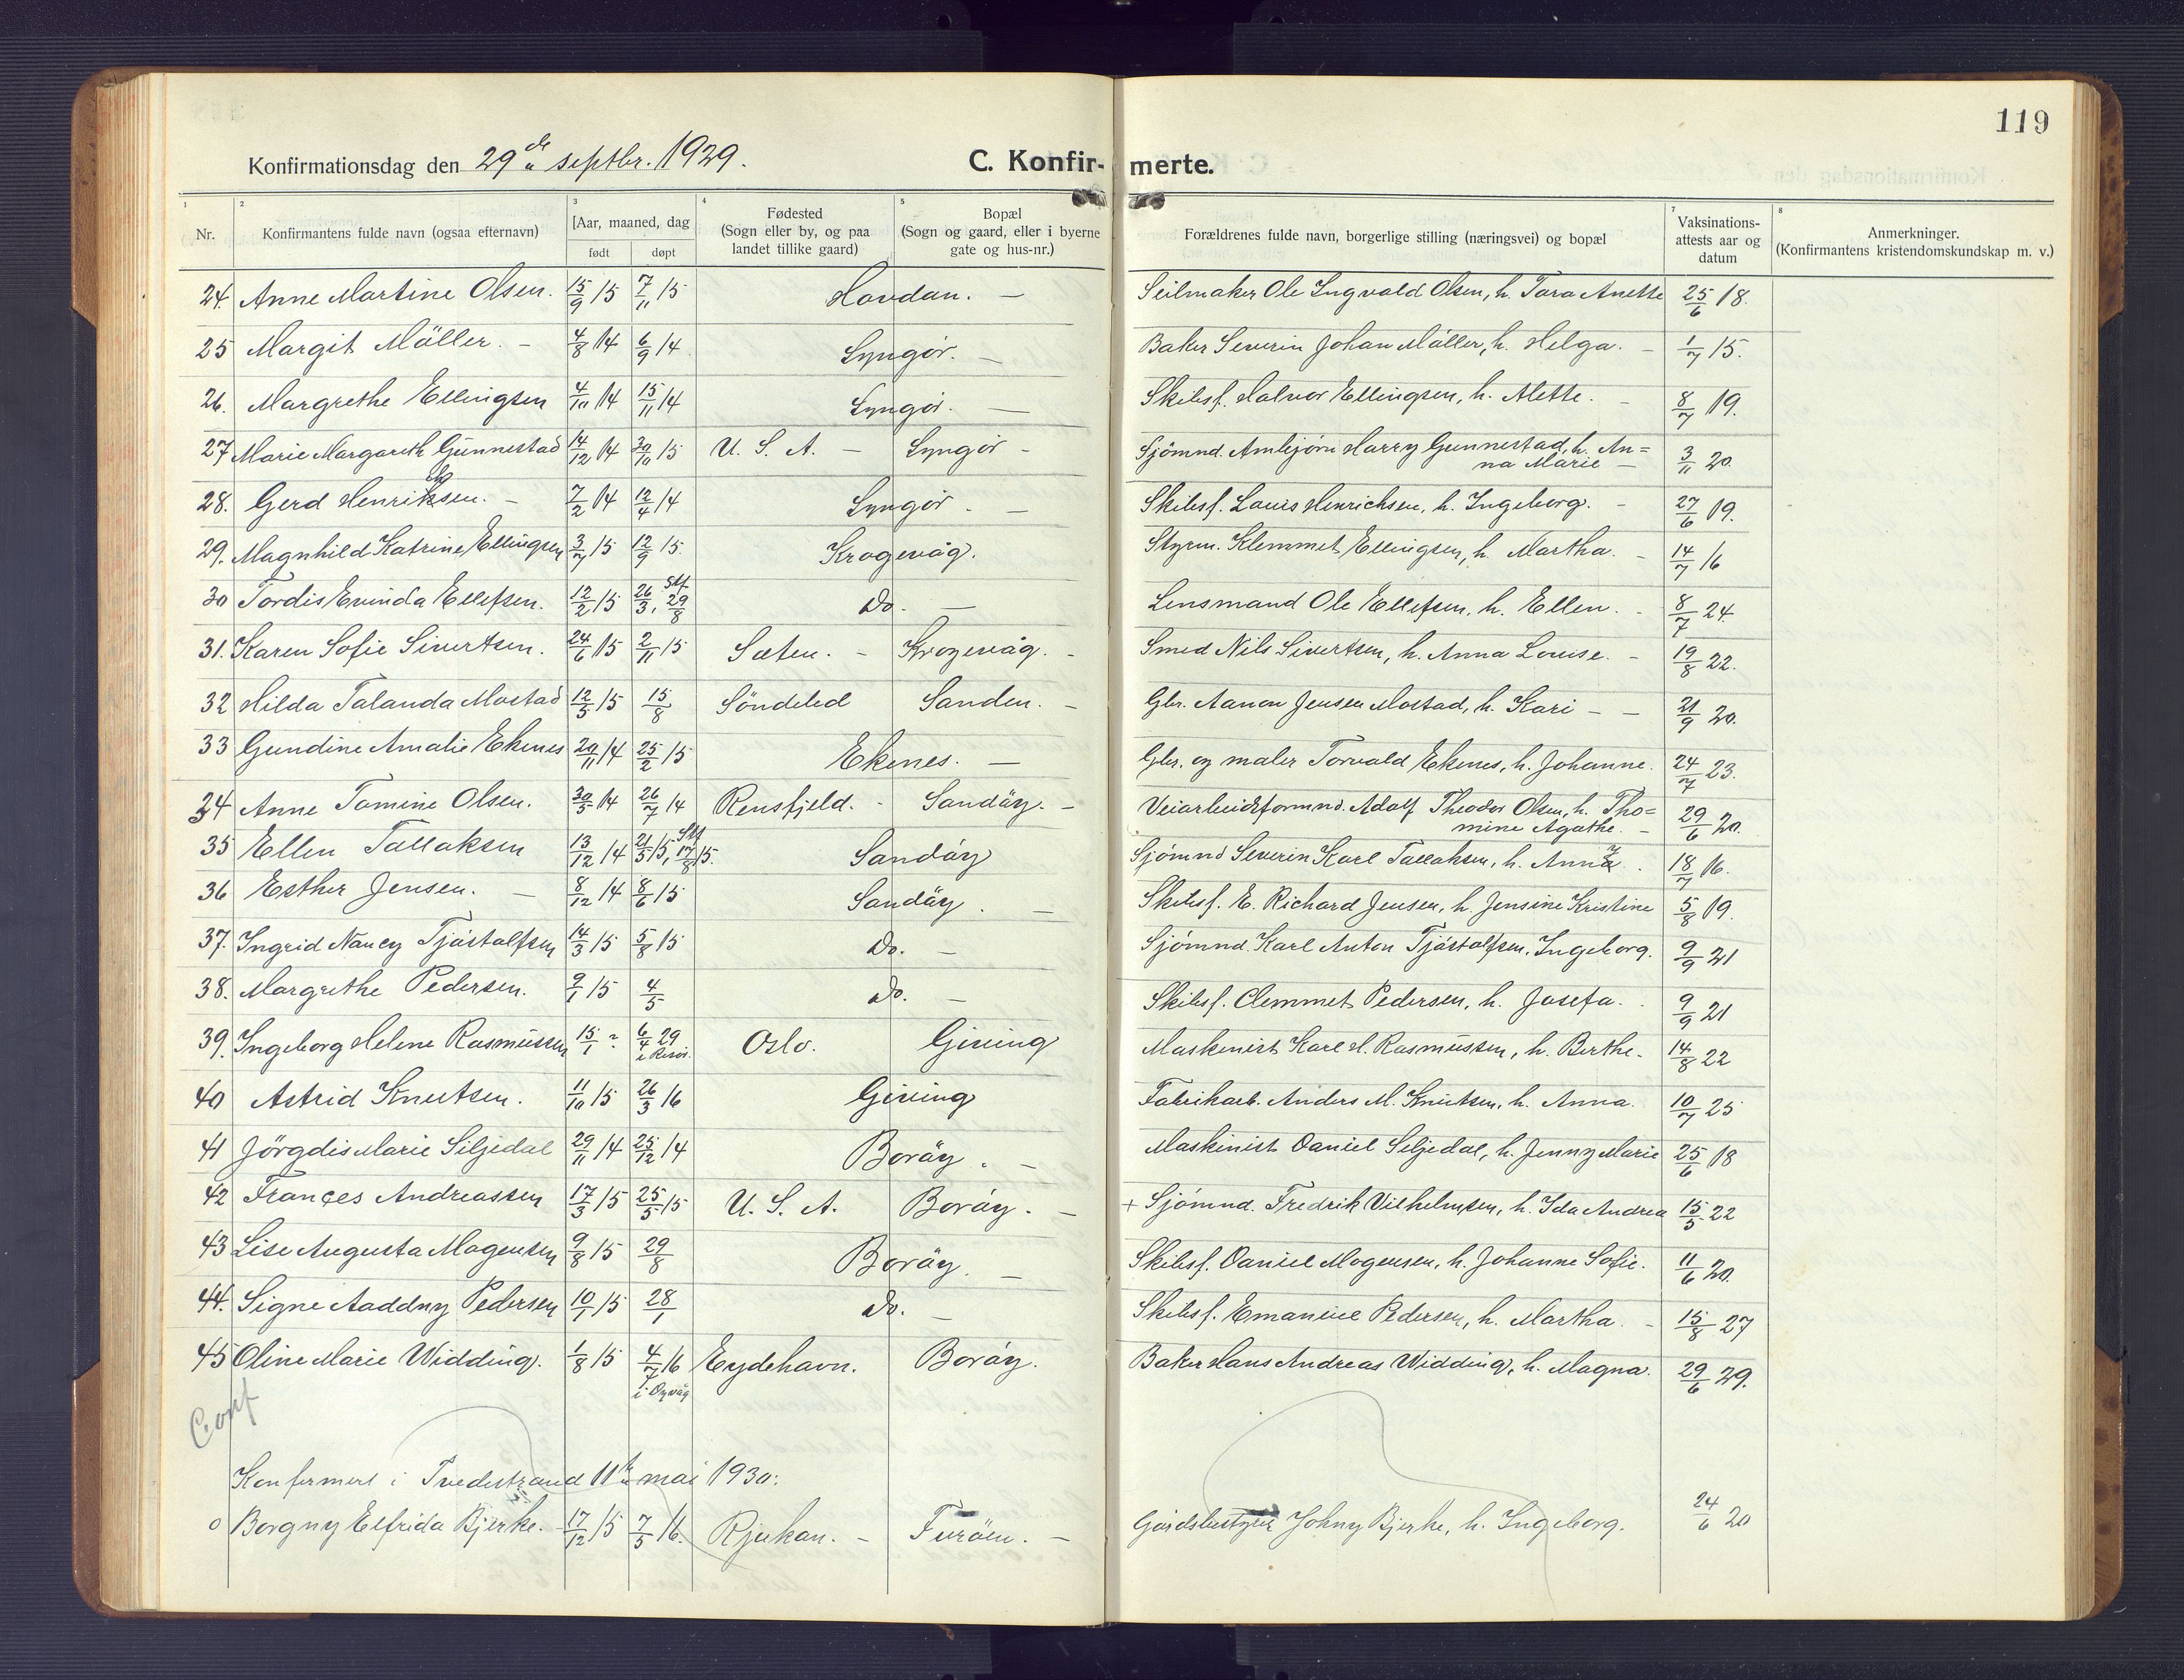 119
Konfirmationsdag den 29de septbr. 1929.
C. Konfirmerte.
1 Nr.
2 Konfirmantens fulde navn (ogsaa efternavn)
3 [Aar, maaned, dag
født døpt
4 Fødested (Sogn eller by, og paa landet tillike gaard)
5 Bopæl (Sogn og gaard, eller i byerne gate og hus-nr.)
Forældrenes fulde navn, borgerlige stilling (næringsvei) og bopæl
7 Vaksinations-attests aar og datum
8 Anmerkninger. (Konfirmantens kristendomskundskap m. v.)
24. Anne Martine Olsen. 15/9 15 7/11 15 Hovdan. — Seilmaker Ole Ingvald Olsen, h. Tara Anette 25/6 18.
25 Margit Möller. – 4/8 14 6/9 14 Lyngör. — Baker Severin Johan Möller, h. Helga. – 1/7 15.
26. Margrethe Ellingsen 4/10 14 15/11 14 Lyngör. — Skibsf. Halvor Ellingsen, h. Alette. – 8/7 19.
27 Marie Margareth Gunnestad 14/12 14 30/10 15 U. S. A. – Lyngör – Sjömnd. Arnbjörn Harry Gunnestad, h. An=
na Marie – 3/11 20.
28. Gerd Henriksen. – ch 7/2 14 12/4 14 Lyngör. — Skibsf. Louis Henrichsen, h. Ingeborg. – 27/6 19.
29. Magnhild Katrine Ellingsen 3/7 15 12/9 15. Krogevåg. Styrm. Klemmet Ellingsen, h. Martha. – 14/7 16
30 Tordis Evinda Ellefsen. 12/2 15 26/3, Stf 29/8 Do. — Lensmand Ole Ellefsen, h. Ellen. – 8/7 24.
31. Karen Sofie Sivertsen. 24/6 15 2/11 15 Sæten. – Krogevåg. – Smed Nils Sivertsen, h. Anna Louise. – 19/8 22.
32 Hilda Talanda Mostad 12/5 15 15/8 Söndeled Sanden. – Gbr. Aanon Jensen Mostad, h. Kari – – 21/9 20.
33 Gundine Amalie Ekenes 20/11 14 25/2 15 Ekenes. — Gbr. og maler Torvald Ekenes, h. Johanne. 24/7 23.
34 Anne Tomine Olsen. 30/5 14 26/7 14 Rensfjeld. – Sandöy. – Veiarbeidsformnd. Adolf Theodor Olsen, h. Tho=
mine Agathe. – 29/6 20.
35 Ellen Tallaksen 13/12 14 21/5 15, Stf 17/8 15. Sandöy Sjömnd Severin Karl Tallaksen, h. Anna. 18/7 16.
36 Esther Jensen. — 8/12 14 8/6 15 Sandöy. — Skibsf. E. Richard Jensen, h. Jensine Kristine 5/8 19.
37. Ingrid Nancy Tjöstolfsen 14/3 15 5/8 15 Do. — Sjömnd. Karl Anton Tjöstolfsen, Ingeborg. 9/9 21
38. Margrethe Pedersen. 9/1 15 4/5 Do. — Skibsf. Clemmet Pedersen, h. Josefa. – 9/9 21
39. Ingeborg Helene Rasmussen 15/1 ? 6/4 29 i Risör. Oslo. Giving Maskinist Karl H. Rasmussen, h. Berthe. 14/8 22
40 Astrid Knutsen. 11/10 15 26/3 16 Giving Fabrikarb. Anders M. Knutsen, h. Anna. 10/7 25
41 Jörgdis Marie Siljedal 29/11 14 25/12 14 Boröy. – Maskinist Daniel Seljedal, h. Jenny Marie 25/6 18
42 Françes Andreassen 17/3 15 25/5 15 U. S. A. Boröy. – + Sjömnd. Fredrik Vilhelmsen, h. Ida Andrea 15/5 22
43 Lise Augusta Mogensen 9/8 15 29/8 Boröy. — Skibsf. Daniel Mogensen, h. Johanne Sofie. 11/6 20.
44. Signe Aaddny Pedersen 10/1 15 28/1 Do. – Skibsf. Emanuel Pedersen, h. Martha. – 15/8 27
45 Oline Marie Widding. 1/8 15 4/7 16 i Dypvåg Eydehavn. Boröy. Baker Hans Andreas Widding, h. Magna. 29/6 29.
Conf
Konfirmert i Tvedestrand 11te mai 1930:
o Borgny Elfrida Bjerke. 17/12 15 7/5 16. Rjukan. – Furöen. – Gårdsbestyrer Johny Bjerke, h. Ingeborg. 24/6 20